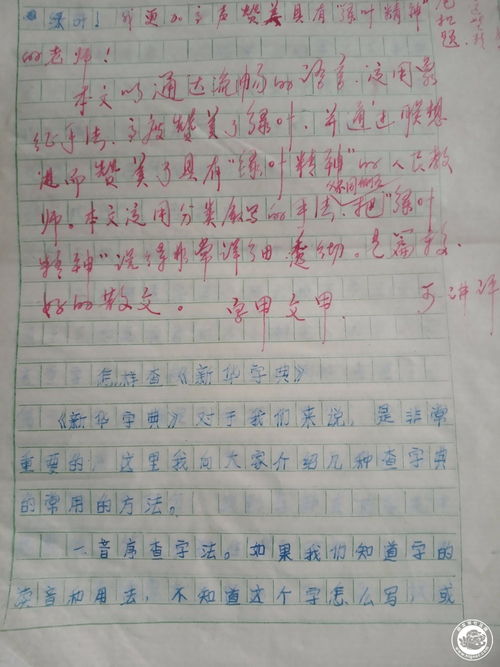 绿叶！我更加高度赞美具有“绿叶精神”
的老师！
本文以通达流畅的语言，运用象
征手法，高度赞美了绿叶，并通过联想
进而赞美了具有“绿叶精神”的人民教
师。本文运用分类叙写的手法，把“绿叶
精神”说得非常详细、透彻。是篇较
好的散文。 字甲 文甲 可讲评
怎样查《新华字典》
《新华字典》对于我们来说，是非常
重要的。这里我向大家介绍几种查字典
的常用的方法。
一音序查字法。如果我们知道字的
读音和用法，不知道这个字怎么写，或